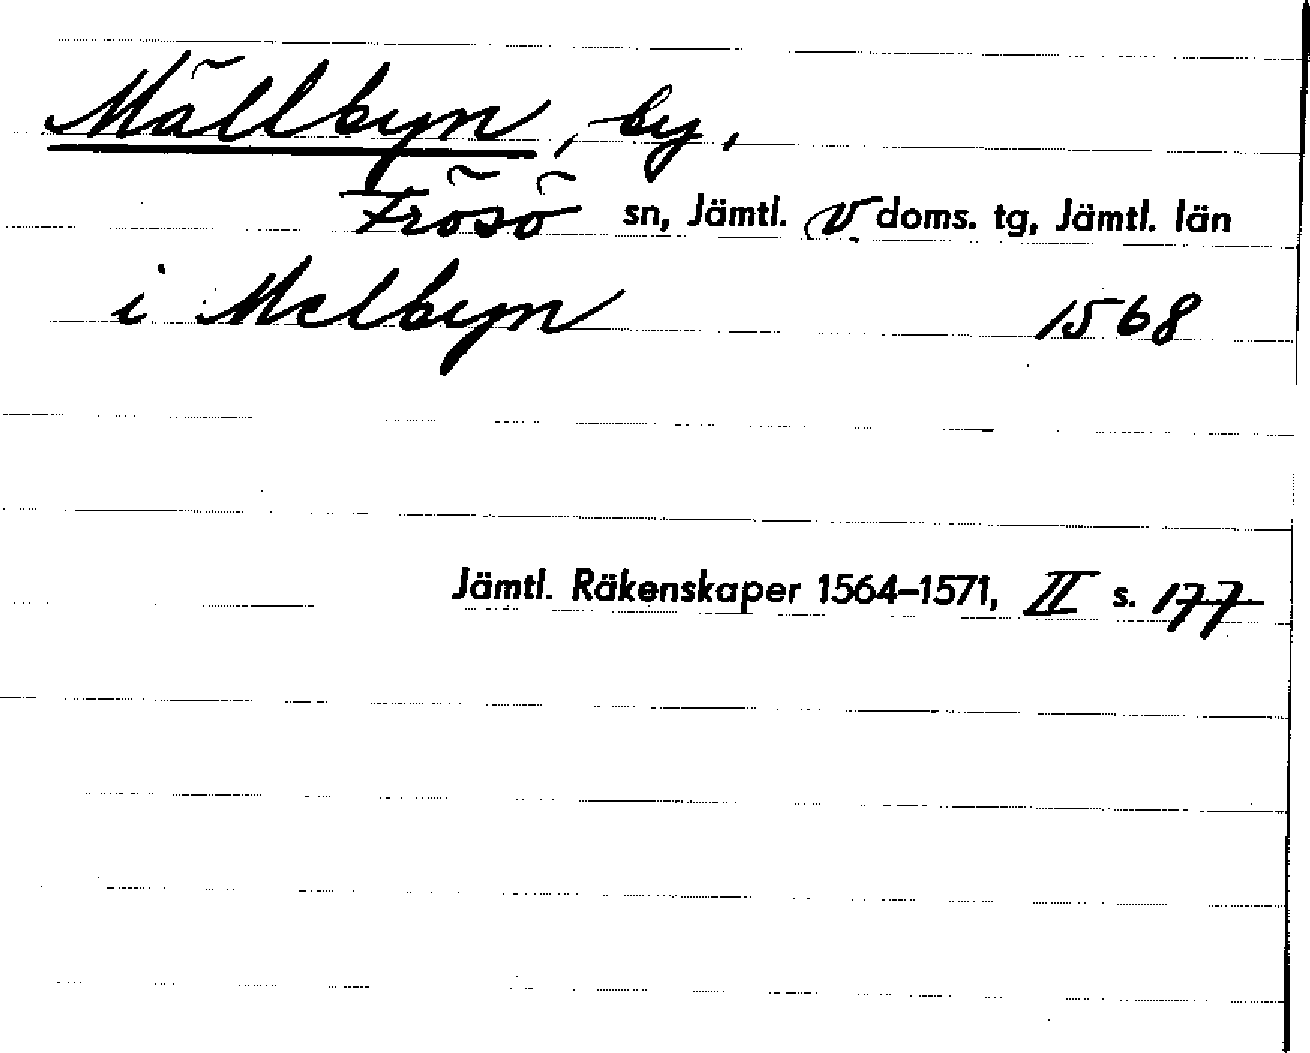 Mällbyn, by,
Frösö sn, Jämtl. v. doms. tg, Jämtl. län
i Melbyn 1568
Jämtl. Räkenskaper 1564–1571, II s. 177